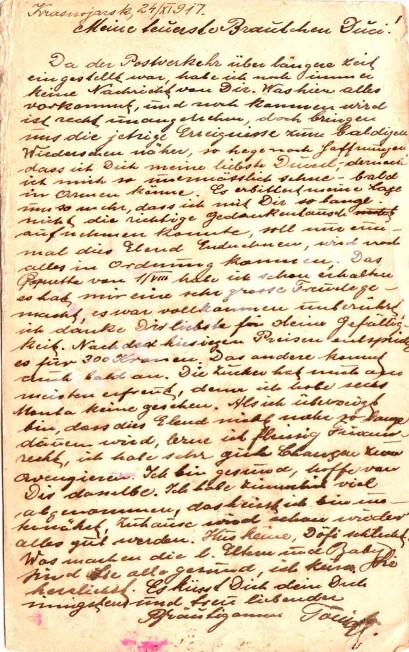 Krasnojarsk, 24/XI 917.
Meine teuerste Bräutchen Duci!
Da der Postverkehr über längere Zeit
eingestellt war, habe ich noch immer
keine Nachricht von Dir. Was hier alles
vorkommt, und noch kommen wird
ist recht unangenehm, doch bringen
uns die jetzige Ereignisse zum baldigen
Wiedersehen näher, so hege noch Hoffnungen
dass ich Dich meine liebste Ducul, dernach
ich mich so sehne bald
in Armen küme. Es erbittert meine Lage
um so mehr, dass ich mit Dir so lange
nicht die richtige Gedankentausch
aufnehmen konnte, soll nur ein-
mal dies Elend Endnehmen, wird noch
alles in Ordnung kommen. Das
von 1/VIII habe ich schon erhalten
es hat mir eine sehr grosse Freudege-
macht, es war vollkommen unberührt
ich danke Dir liebste für deine Gefällig-
keit. Nach den hiesigen Preisen
es für 300 Kronen. Das andere kommt
auch bald an. Die Zucker hat mich am
meisten erfreut, denn ich habe seit
Monta keine gesehen. Als ich überzeugt
bin, dass dies Elend nicht mehr so lange
dauern wird, lerne ich fleissig
recht, ich habe sehr gute Chancen zum
Ich bin gesund, hoffe von
Dir dasselbe. Ich habe ziemlich viel
abgenommen, das
zuhause wird schon wieder
alles gut werden.
Was machen die l. Eltern und Baby
sind Sie alle gesund, ich küsse Sie
herzlichst. Es küsst Dich dein Dich
innigstens und treu liebender
Bräutigam